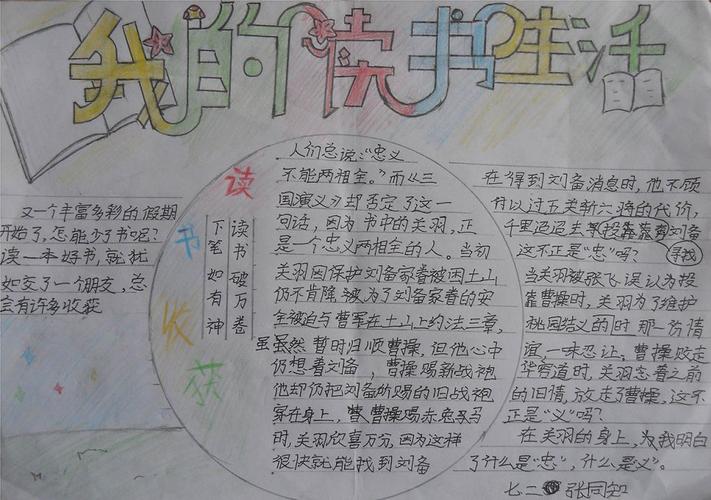 我的读书生活
又一个丰富多彩的假期
开始了,怎能少了书呢?
读一本好书,就犹
如交了一个朋友,总
会有许多收获
读
书
收
获
读书破万卷
下笔如有神
人们总说:“忠义
不能两相全。”而《三
国演义》却否定了这一
句话,因为书中的关羽,正
是一个忠义两相全的人。当初
关羽因保护刘备家眷被困土山
仍不肯降,被为了刘备家眷的安
全被迫与曹军在土山上约法三章,
虽虽然暂时归顺曹操,但他心中
仍想着刘备,曹操赐新战袍
他却仍把刘备所赐的旧战袍
穿在身上,曹操赐赤兔马
时,关羽欣喜万分,因为这样
很快就能找到刘备
在得到刘备消息时,他不顾
付以过五关斩六将的代价,
千里迢迢去寻找刘备
这不正是“忠”吗?
当关羽被张飞误认为投
靠曹操时,关羽为了维护
桃园结义的时那一份情
谊,一味忍让;曹操败走
华容道时,关羽念着之前
的旧情,放走了曹操,这不
正是“义”吗?
在关羽的身上,为我明白
了什么是“忠”,什么是义。
七二 张同知